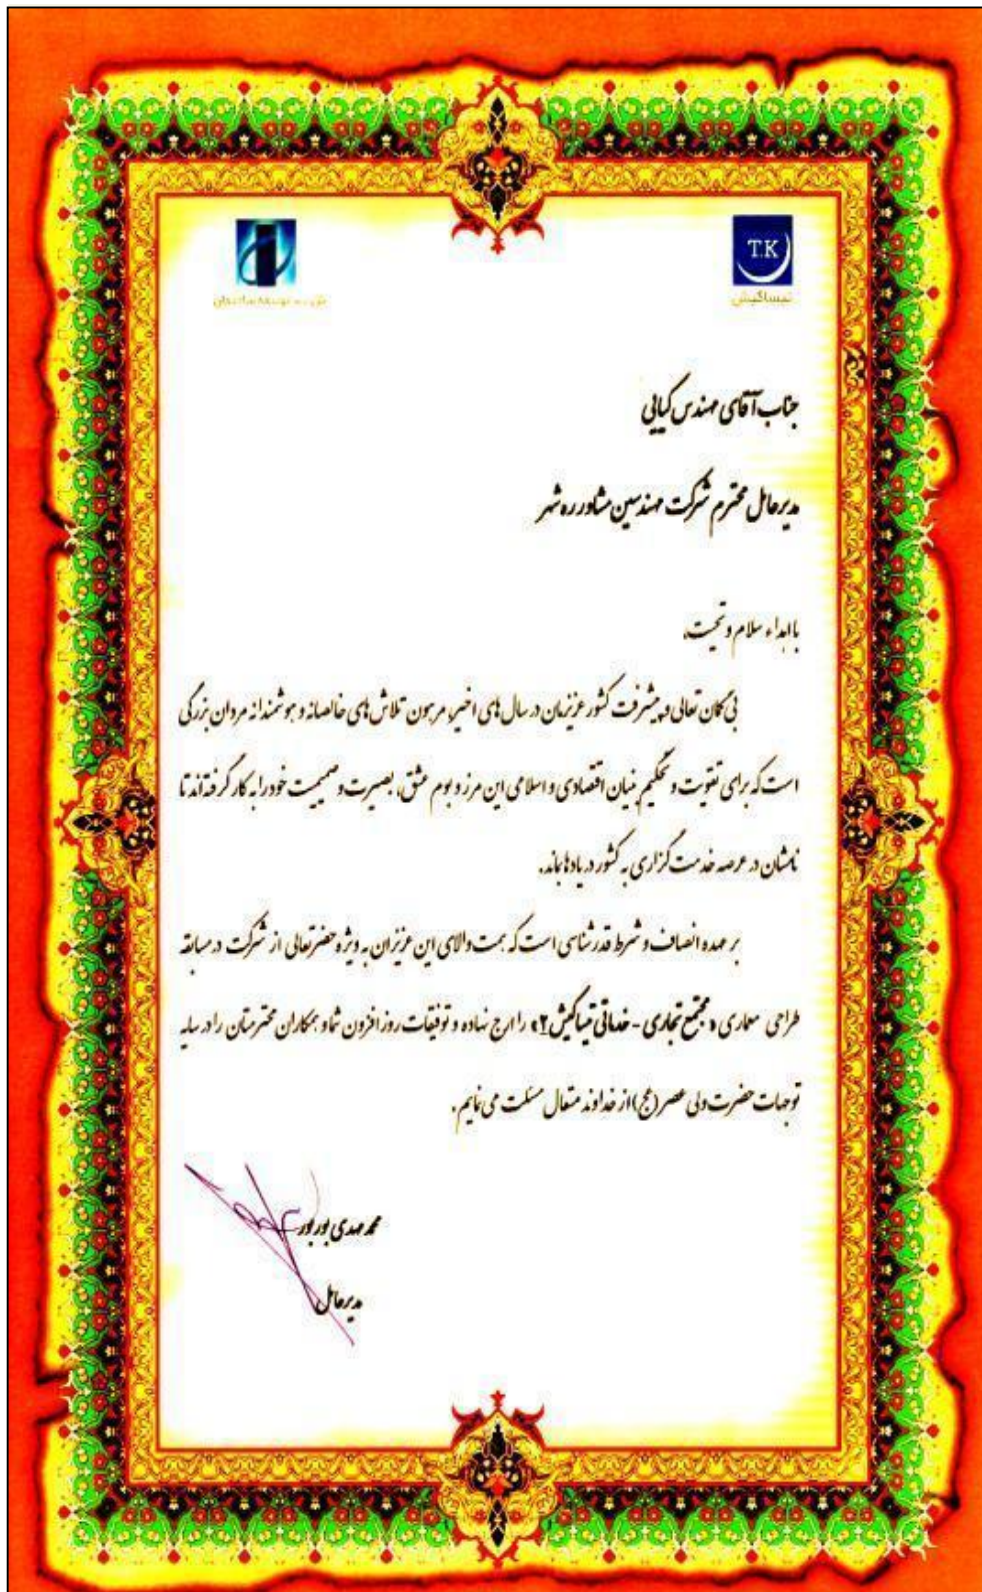 T.K
تیساکیش
جناب آقای مهندس کیایی
مدیرعامل محترم شرکت مهندسین مشاور ره شهر
با اهداء سلام و تحیت،
بی گمان تعالی و پیشرفت کشور عزیزمان در سال های اخیر، مرهون تلاش های خالصانه و هوشمندانه مردان بزرگی
است که برای تقویت و تحکیم بنیان اقتصادی و اسلامی این مرز و بوم عشق، بصیرت و صمیمیت خود را به کار گرفته‌اند تا
نامشان در عرصه خدمت گزاری به کشور در یادها بماند.
بر عهده انصاف و شرط قدرشناسی است که همت والای این عزیزان به ویژه حضرتعالی از شرکت در مسابقه
طراحی معماری «مجتمع تجاری - خدماتی تیساکیش ۲» را ارج نهاده و توفیقات روز افزون شما و همکاران محترمتان را در سایه
توجهات حضرت ولی عصر (عج) از خداوند متعال مسئلت می نمایم.
محمد مهدی پورپور
مدیرعامل